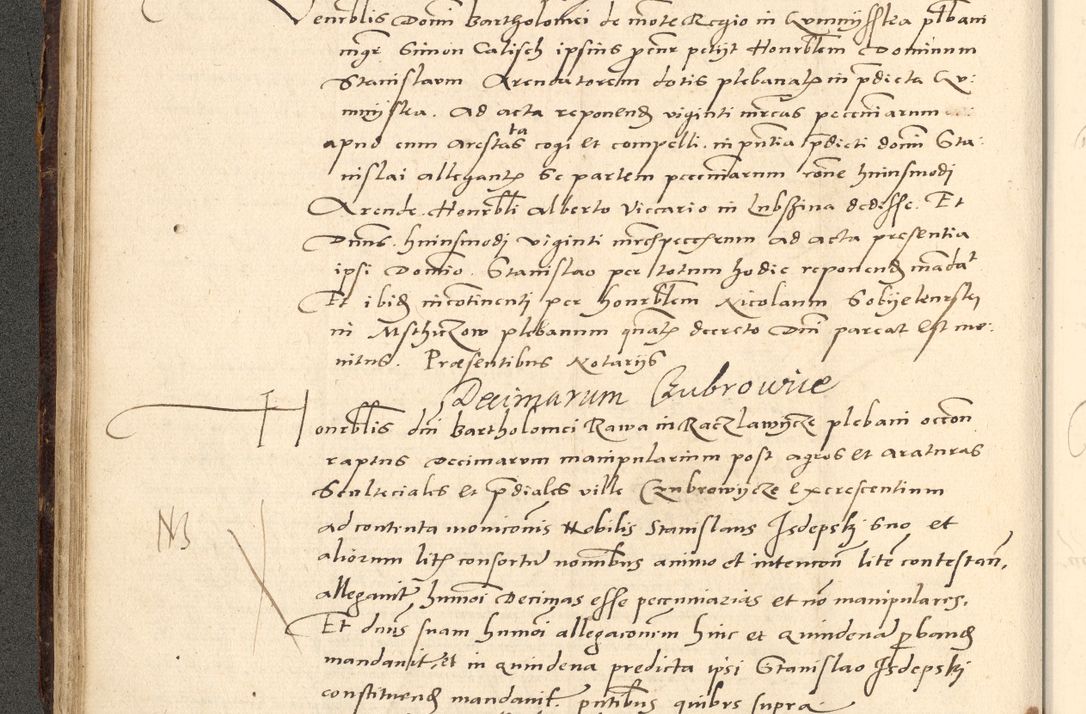 Venrblis Domi Bartholomei de mote Regio in Qvmnysska plbani
mgr Simon Calisch ipsius pcnr petijt Honrblem Dominum
Stanislavm Arendatorem dotis plebanalis in pdicta Qv:
mnyska. Ad acta reponend viginti mrcas pecuniarum
apud eum arestatas cogi et compelli. in pntia pdicti domi Sta:
nislai allegantis se partem pecuniarum rone huiusmodi
Arende. Honrbli Alberto Viccario in Lubssina dedisse. Et
Dnus. huiusmodi viginti mrcas pecuniarum ad acta presentia
ipsi Domio. Stanislao per totum hodie reponend madat
Et ibid incontinenti per honrblem Nicolaum Sobijekurski
in Msthiczow plebanum quatis decreto Dni pareat est mo:
nitus. Præsentibus Notarijs
Decimarum Czubrowice
Honrblis dni Bartholomei Rawa in Raczlawycze plebani occon
raptus decimarvm manipularium post agros et araturas
Sculteciales et pdiales ville Czubrowycze excrescentium
ad contenta monicois Nobilis Stanislaus Isdepski suo et
NB
aliorum litis consortu nomibus animo et intencon lite contestan,
allegauit humoi decimas esse pecuniarias et no manipulares.
Et dnus suam humoi allegaconem hinc et quindena pband
mandauit, et in quindena predicta ipsi Stanislao Isdepski
constituend mandauit. pntibus quibus supra.